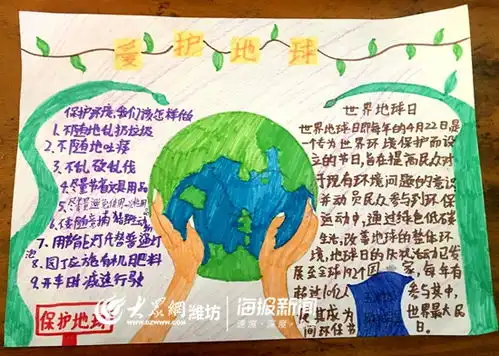 爱护地球
保护环境,我们该怎样做
1.不随地乱扔垃圾
2.不随地吐痰
3.不乱砍乱伐
4.尽量节省文具用品
5.尽量避免使用一次性用品
7.用节能灯代替普通灯泡
8.园丁应施有机肥料
9.开车时减速行驶
保护地球
世界地球日
世界地球日即每年的4月22日是
一个专为世界环境保护而设
立的节日,旨在提高民众对
于现有环境问题的意识
并动员民众参与到环保
运动中,通过绿色低碳
生活,改善地球的整体环
境,地球日的庆祝活动已发
展至全球192个国家,每年有
超过10亿人参与其中,
使其成为世界最大民
间环保节日。
大众网 潍坊
WWW.DZWWW.COM
海报新闻
速度·深度·